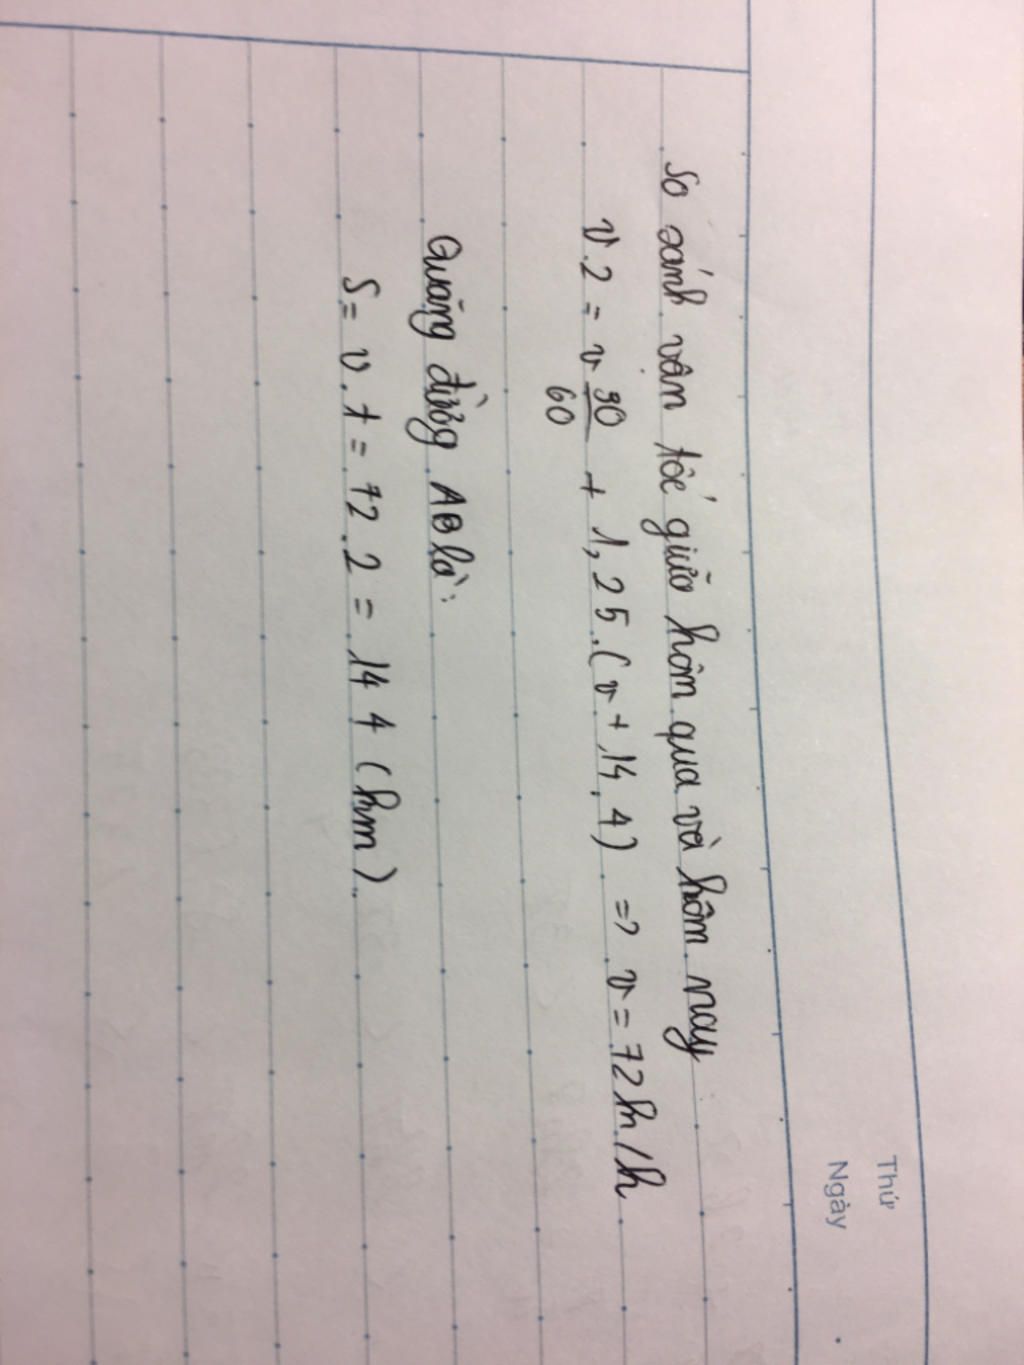 Thứ
Ngày
So sánh vận tốc giữa hôm qua và hôm nay
v.2 = v 90/60 + 1,25.(v + 14,4) => v = 72km/h
Quãng đường AB là:
S = v.t = 72.2 = 144 (km)